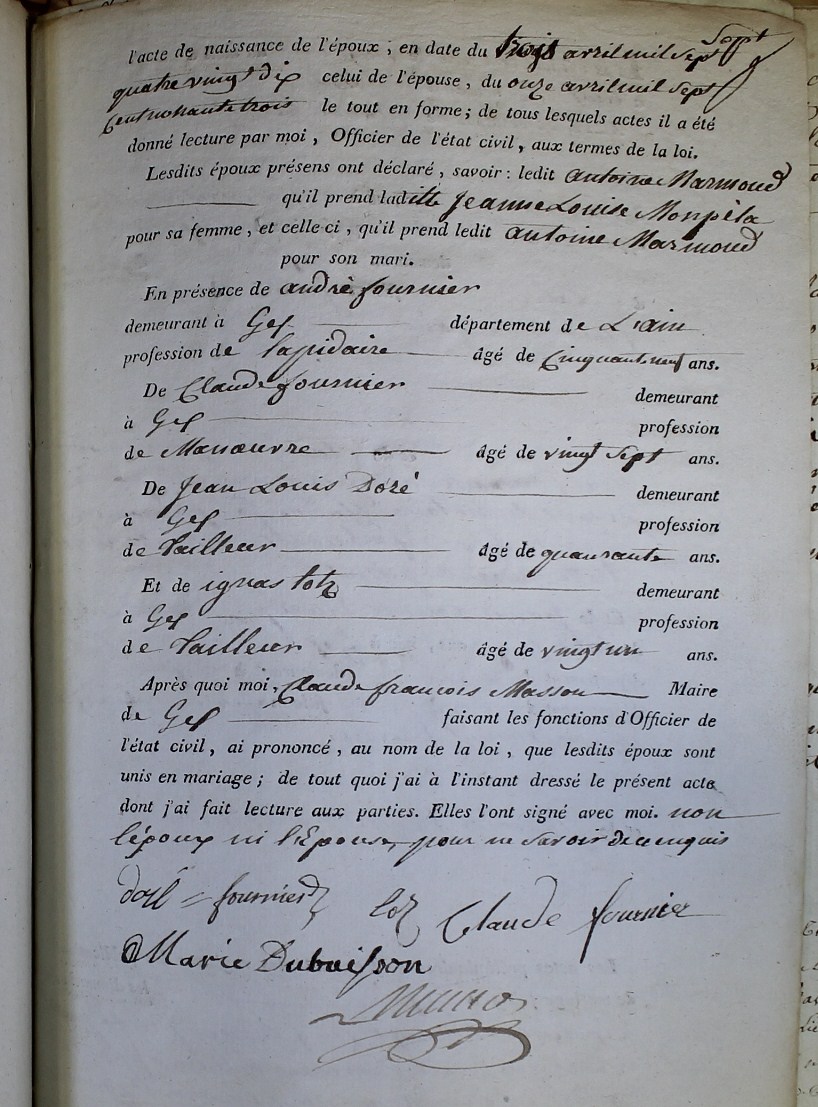 l'acte de naissance de l'époux ; en date du trois avril mil sept
quatre vingt dix celui de l'épouse, du onze avril mil sept
cent nonante trois le tout en forme ; de tous lesquels actes il a été
donné lecture par moi, Officier de l'état civil, aux termes de la loi.
Lesdits époux présens ont déclaré, savoir : ledit antoine Marmoud
qu'il prend laditte Jeanne Louise Monpéla
pour sa femme, et celle ci, qu'il prend ledit antoine Marmoud
pour son mari.
En présence de andrè fournier
demeurant à Gex département de L'ain
profession de lapidaire âgé de Cinquante neuf ans.
De Claude fournier demeurant
à Gex profession
de Manœuvre âgé de vingt sept ans.
De Jean Louis Doré demeurant
à Gex profession
de tailleur âgé de quaurante ans.
Et de ignas lotz demeurant
à Gex profession
de tailleur âgé de vingt un ans.
Après quoi moi, Claude francois Masson Maire
de Gex faisant les fonctions d'Officier de
l'état civil, ai prononcé, au nom de la loi, que lesdits époux sont
unis en mariage ; de tout quoi j'ai à l'instant dressé le présent acte
dont j'ai fait lecture aux parties. Elles l'ont signé avec moi. non
lépoux ni l'Epouse, pour ne savoir de ce enquis
fournier loz Claude fournier
Marie Dubuisson